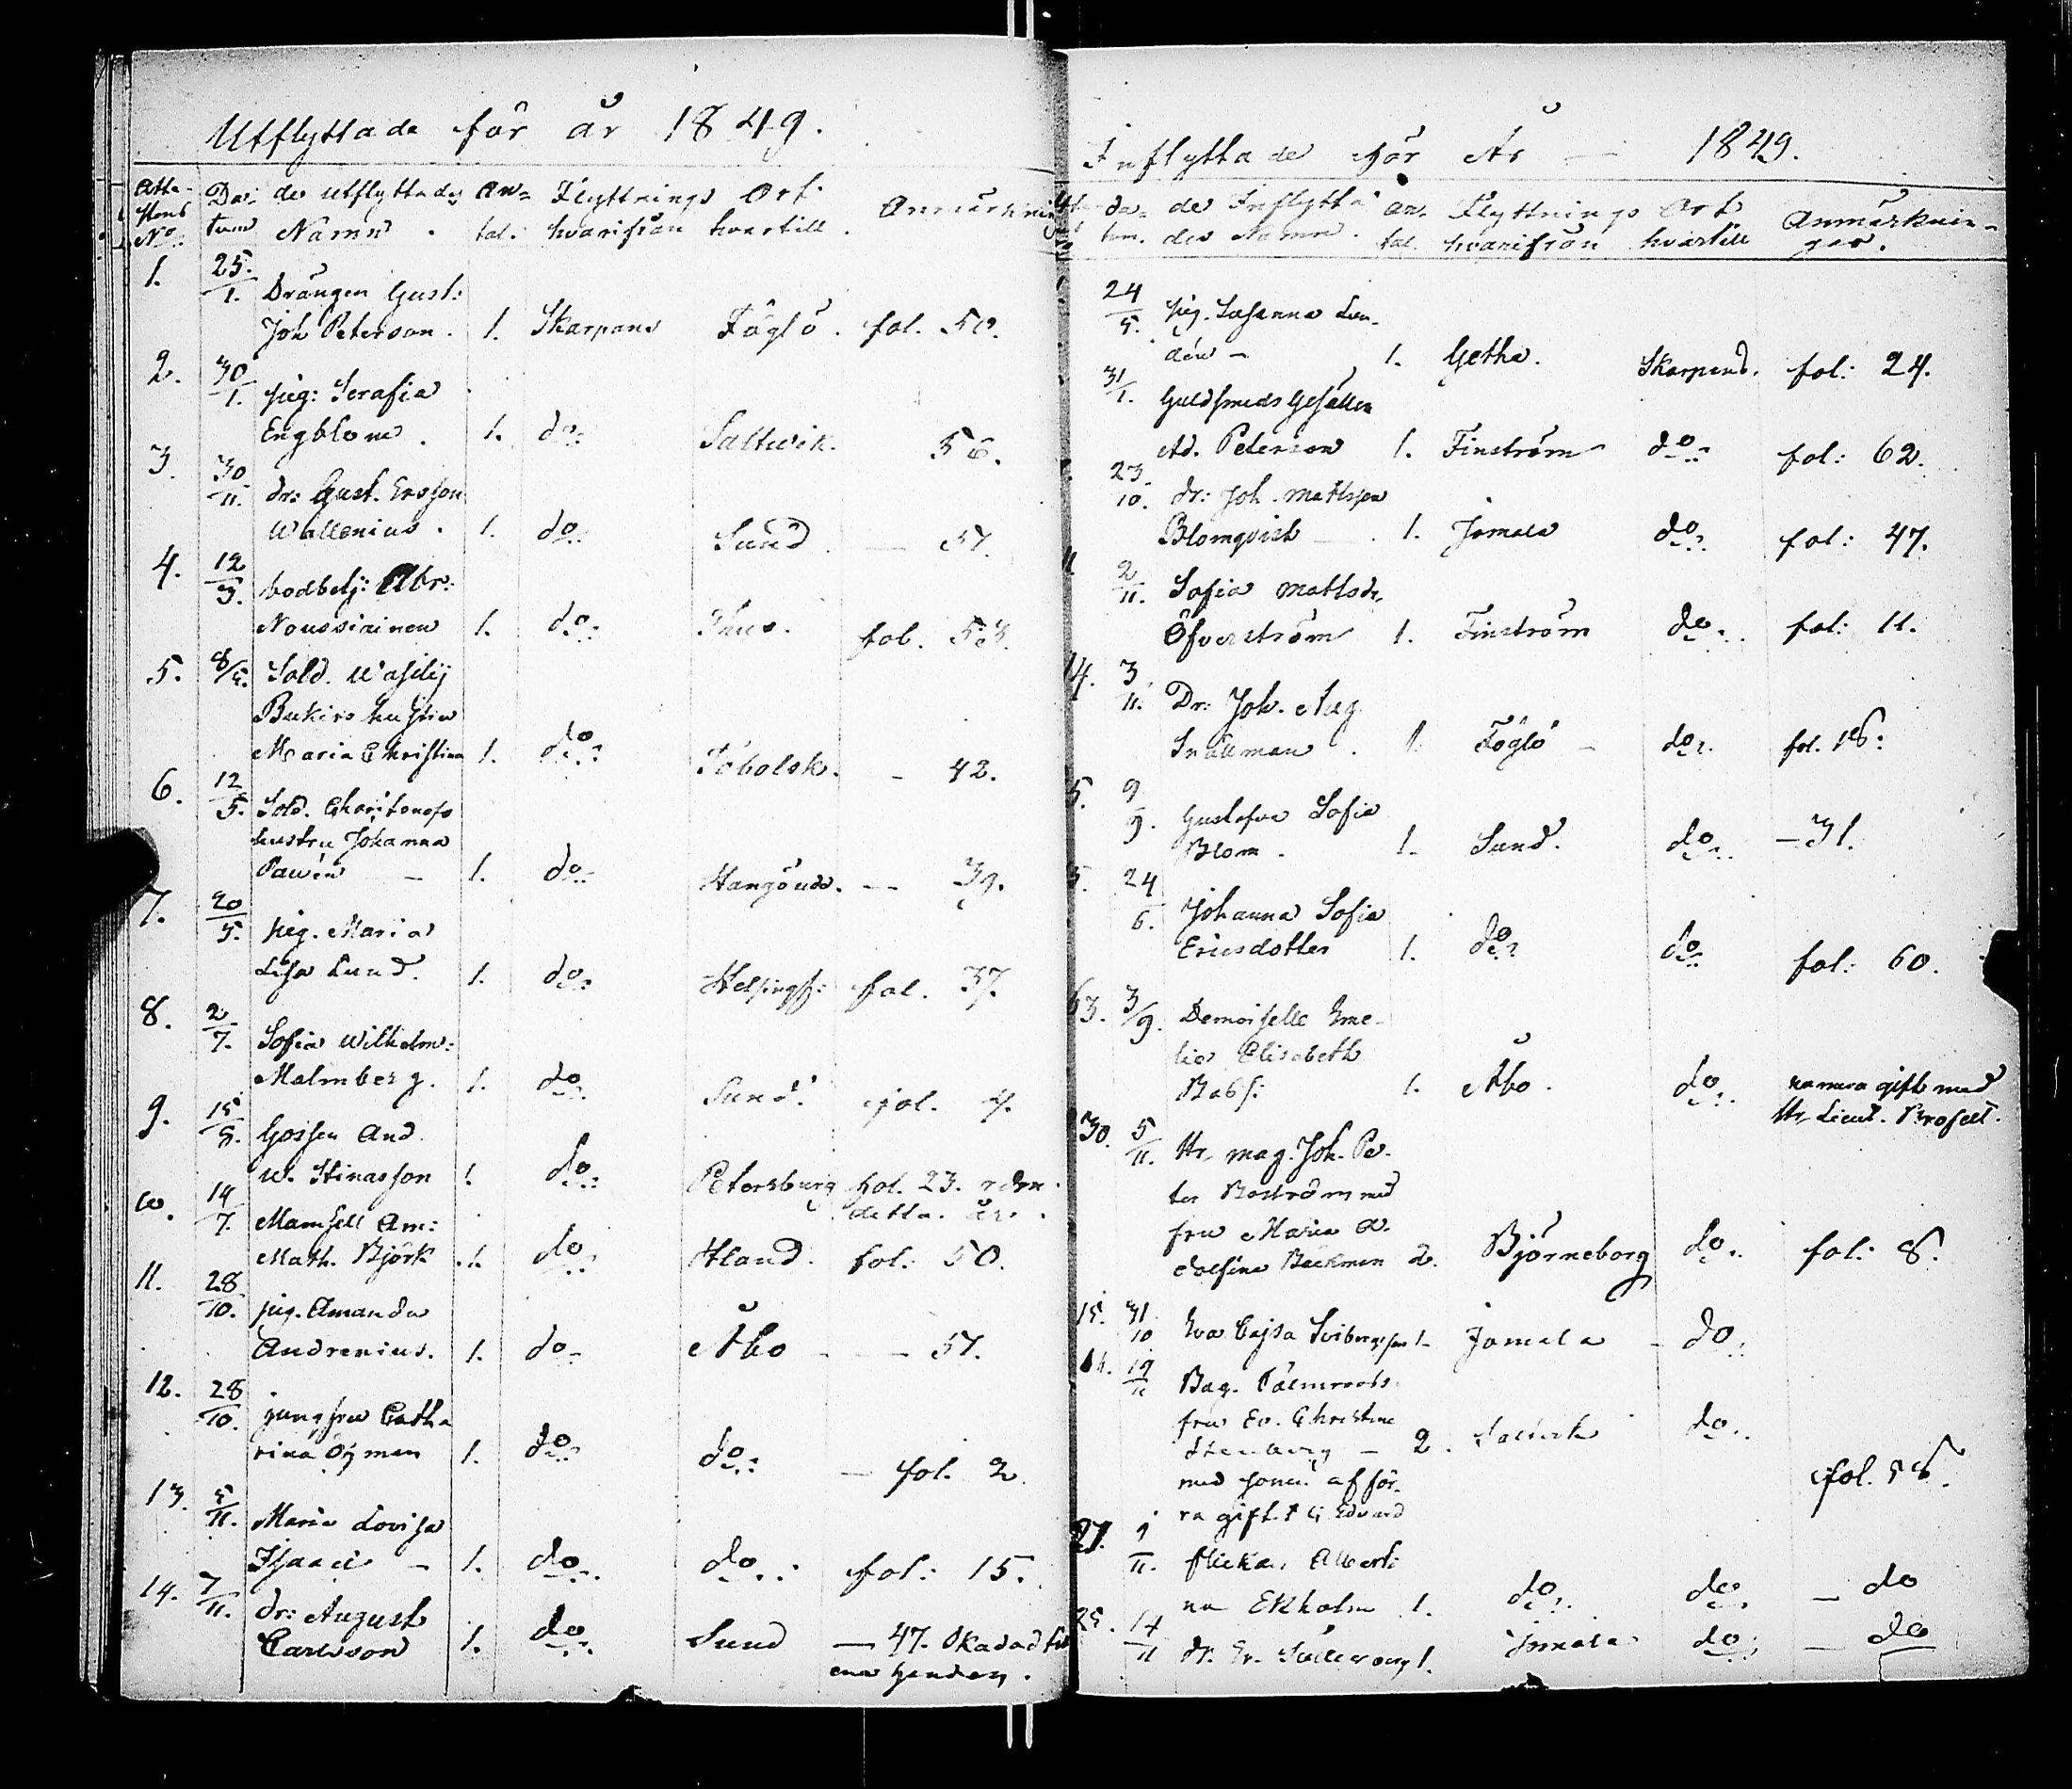 Utflyttade för år 1849.
Atte-
stens
No
Da-
tum
de utflyttades
Namn.
An-
tal.
Flyttnings Ort
hvarifrån hvartill.
Anmärkning
1. 25/1. Drängen Gust:
Joh Peterson. 1. Skarpans Föglö. fol. 50.
2. 30/1. pig: Serafia
Engblom. 1. do: Saltvik. 56.
3. 30/11. dr: Gust. Ersson
Wallenius. 1. do: Sund. — 57.
4. 12/3. bodbetj: Abr:
Noussiainen 1. do: fol. 53.
5. 8/5. Sold. Wasilij
hustru
Maria Christina 1. do: Tobolsk. - 42.
6. 12/5. Sold. Charitonofs
hustru Johanna
Pawén — 1. do: Hangöudd. -- 39.
7. 20/5. pig. Maria
Lisa Lund. 1. do: Helsingf: fol. 37.
8. 2/7. Sofia Wilhelm:
Malmberg. 1. do: Sund. fol. 4.
9. 15/8. Gossen And.
W. Stinasson 1. do: Petersburg fol. 23.
detta år.
10. 14/7. Mamsell Am:
Math. Björk. 1. do: Åland. fol: 50.
11. 28/10. pig. Amanda
Andrenius. 1. do: Åbo - - 57.
12. 28/10. jungfru Catha
rina Öjman 1. do: do: — fol. 2.
13. 5/11. Maria Lovisa
1. do: do: fol: 15.
14. 7/11. dr: August
Carlsson 1. do: Sund — 47. Okadad
Inflyttade för År — 1849.
da-
tum.
de Inflytta
des Namn.
an-
tal.
Flyttnings Ort
hvarifrån hvartill
Anmärknin-
gar.
24/5. pig. Susanna Lin-
dén — 1. Getha. Skarpans. fol: 24.
31/1. Guldsmeds Gesällen
Ad. Peterson 1. Finström do: fol: 62.
23/10. dr: Joh. Mattsson
Blomqvist — 1. Jomala do: fol: 47.
2/11. Sofia Mattsdr.
Öfverström 1. Finström do: fol: 11.
14. 3/11. Dr: Joh. Aug.
Snällman. 1. Föglö - do: fol. 18:
5. 9/9. Gustafva Sofia
Blom. 1. Sund. do: - 31.
5. 24/6. Johanna Sofia
Ericsdotter 1. do: do: fol: 60.
63. 3/9. Demoiselle Eme-
lie Elisabeth
1. Åbo. do: numera gift med
Hr Lieut.
30. 5/11. Hr mag. Joh. Pe-
ter Boström med
fru Maria A-
dolfina Bäckman 2. Björneborg do: fol: 8.
15. 31/10 Eva Cajsa 1- Jomala - do:
19/11 Bag.
fru Ev. Christina
— 2. do:
med sonen af för-
ra giftet G: Edvard fol. 58.
27. 9/11. flickan Alberti-
na Ekholm 1. do: do: — do
25. 14/11 dr. 1. Jomala do: — do